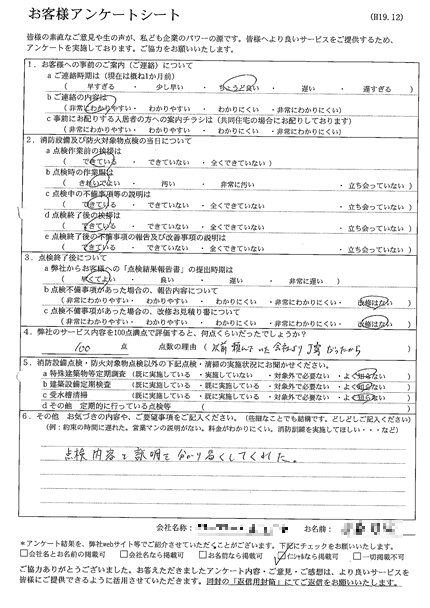 お客様アンケートシート
(H19.12)
皆様の素直なご意見や生の声が、私ども企業のパワーの源です。皆様へより良いサービスをご提供するため、
アンケートを実施しております。ご協力をお願いいたします。
1．お客様への事前のご案内（ご連絡）について
a ご連絡時期は（現在は概ね1か月前）
（ 早すぎる ・ 少し早い ・ ちょうど良い ・ 遅い ・ 遅すぎる ）
b ご連絡の内容は
（非常にわかりやすい ・ わかりやすい ・ わかりにくい ・ 非常にわかりにくい）
c 事前にお配りする入居者の方への案内チラシは（共同住宅の場合にお配りしております）
（非常にわかりやすい ・ わかりやすい ・ わかりにくい ・ 非常にわかりにくい）
2．消防設備及び防火対象物点検の当日について
a 点検作業前の挨拶は
（ できている ・ できていない ・ 全くできていない）
b 点検時の作業服は
（ きれいでよい ・ 汚い ・ 非常に汚い ・ 立ち会っていない ）
c 点検中の不備事項等の説明は
（ できている ・ できていない ・ 全くできていない ・ 立ち会っていない ）
d 点検終了後の挨拶は
（ できている ・ できていない ・ 全くできていない ・ 立ち会っていない ）
e 点検終了後の不備事項の報告及び改善事項の説明は
（ できている ・ できていない ・ 全くできていない ・ 立ち会っていない ）
3．点検終了後について
a 弊社からお客様への「点検結果報告書」の提出時期は
（ 早くてよい ・ 良い ・ 遅い ・ 非常に遅い ）
b 点検不備事項があった場合の、報告内容について
（非常にわかりやすい ・ わかりやすい ・ わかりにくい ・ 非常にわかりにくい ・ 改修はない）
c 点検不備事項があった場合の、改修お見積り書について
（非常にわかりやすい ・ わかりやすい ・ わかりにくい ・ 非常にわかりにくい ・ 改修はない）
4．弊社のサービス内容を100点満点で評価すると、何点くらいだったでしょうか？
100 点 点数の理由（以前頼んでいた会社より丁寧だったから
5．消防設備点検・防火対象物点検以外の下記点検・清掃の実施状況にお聞かせください。
a 特殊建築物等定期調査 （既に実施している ・ 実施していない ・ 対象外で必要ない ・ よく知らない）
b 建築設備定期検査 （既に実施している ・ 実施していない ・ 対象外で必要ない ・ よく知らない）
c 受水槽清掃 （既に実施している ・ 実施していない ・ 対象外で必要ない ・ よく知らない）
d その他 定期的に行っている点検等 （ ）
6．その他 お気づきの内容や、ご要望事項をご記入ください。（些細なことでも結構です。どしどしご記入ください）
（例：約束の時間に遅れた。営業マンの説明がない。料金がわかりにくい。消防訓練を実施してほしい・・・など）
点検内容を説明を分かり易くしてくれた。
会社名称：
お名前：
＊アンケート結果を、弊社webサイト等でご紹介させていただくことがございます。下記にチェックをお願いいたします。
□会社名とお名前の掲載可 □会社名なら掲載可 □お名前なら掲載可 □イニシャルなら掲載可 □一切掲載不可
ご協力ありがとうございました。お答えただきましたアンケート内容・ご意見・ご感想は、より良いサービスを
皆様にご提供できるように活用させていただきます。同封の「返信用封筒」にてご返信をお願いいたします。